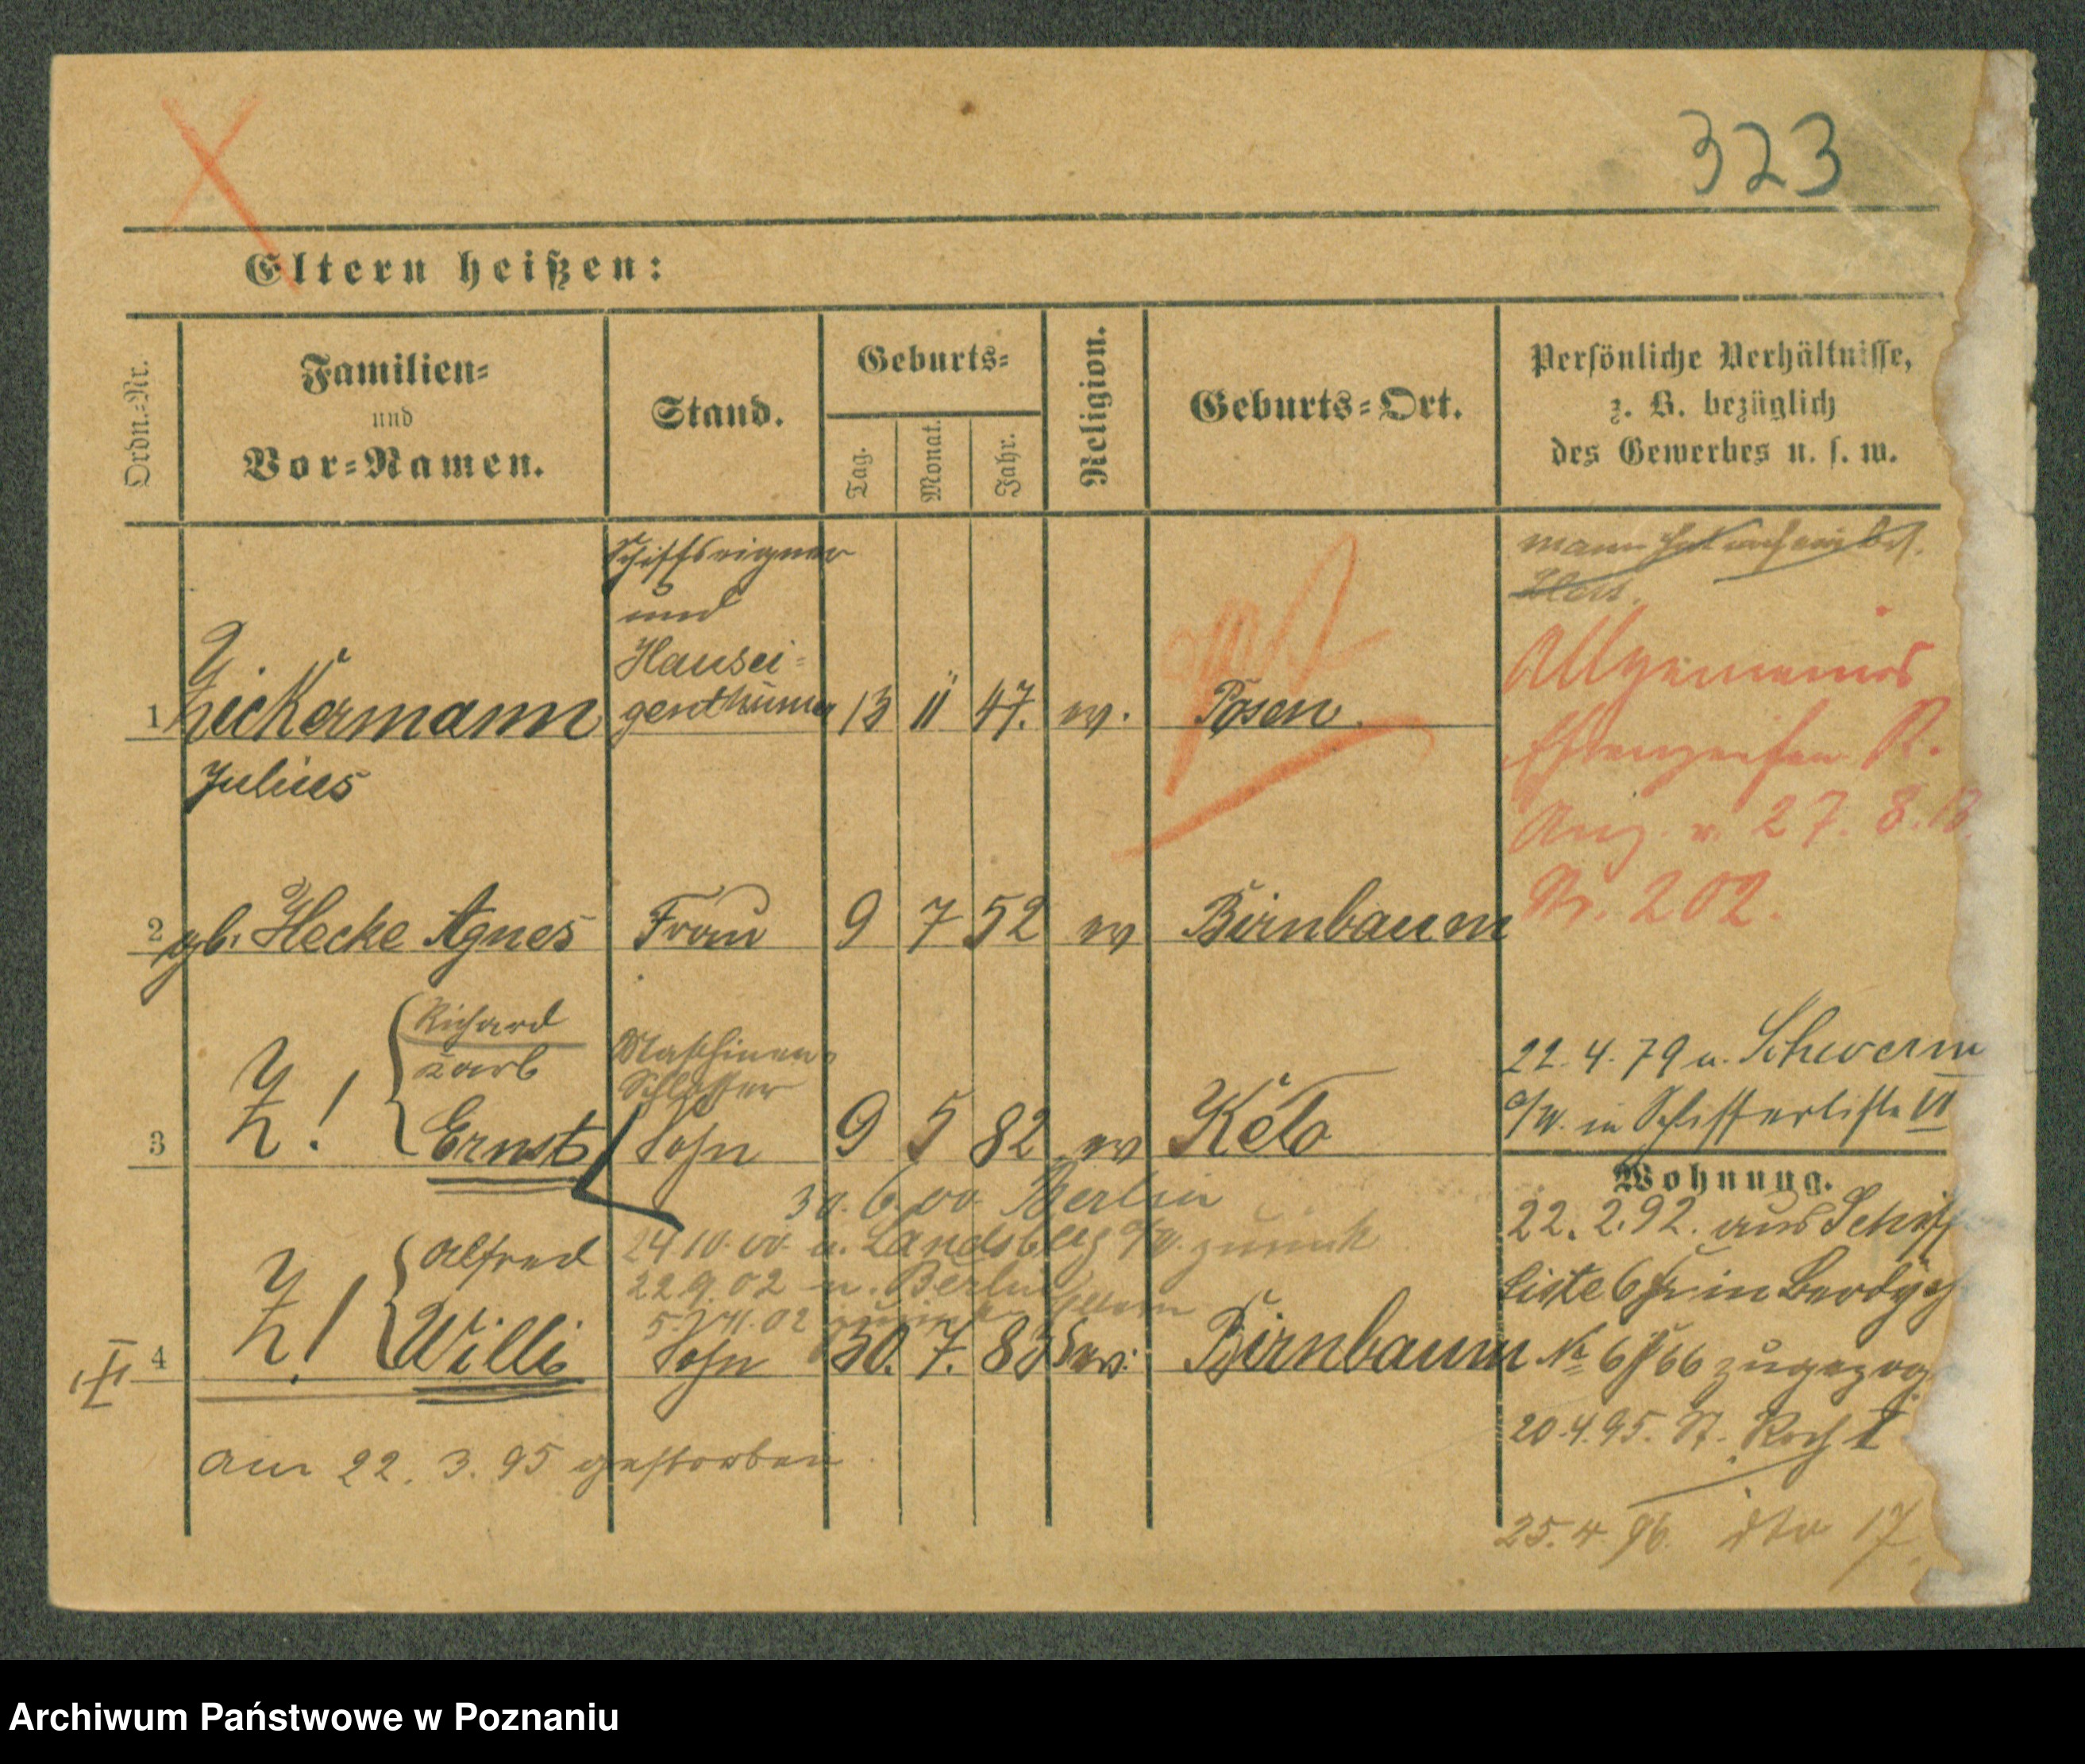 323
Eltern heißen:
Ordn.-Nr.
Familien-
und
Vor-Namen.
Stand.
Geburts-
Tag.
Monat.
Jahr.
Religion.
Geburts-Ort.
Persönliche Verhältnisse,
z. B. bezüglich
des Gewerbes u. s. w.
Schiffseigner
und
Hausei-
genthümer
1 Zickermann 13 11 47. ev. Posen.
Julius
Allgemeines
Ehrenzeichen P.
Anz. v. 27. 8. 13
Nr. 202.
2 gb. Hecke Agnes Frau 9 7 52 ev Birnbaum
Richard
Karl
Maschinen-
Schlosser
3 Z! Ernst Sohn 9 5 82 ev
22. 4. 79 n. Schwerin
a/W. in Schifferliste VI
Wohnung.
30. 6. 00 Berlin
24 10. 00 n. Landsberg a/W. zurück
22 9. 02 n. Berlin
Alfred
4 Z! Willi Sohn 30. 7. 83 ev. Birnbaum
22. 2. 92. aus Schiff
Liste 6
No 6566 zugezog
20. 4. 95. St. Roch 1
am 22. 3. 95 gestorben
25. 4. 96. dto 17
Archiwum Państwowe w Poznaniu